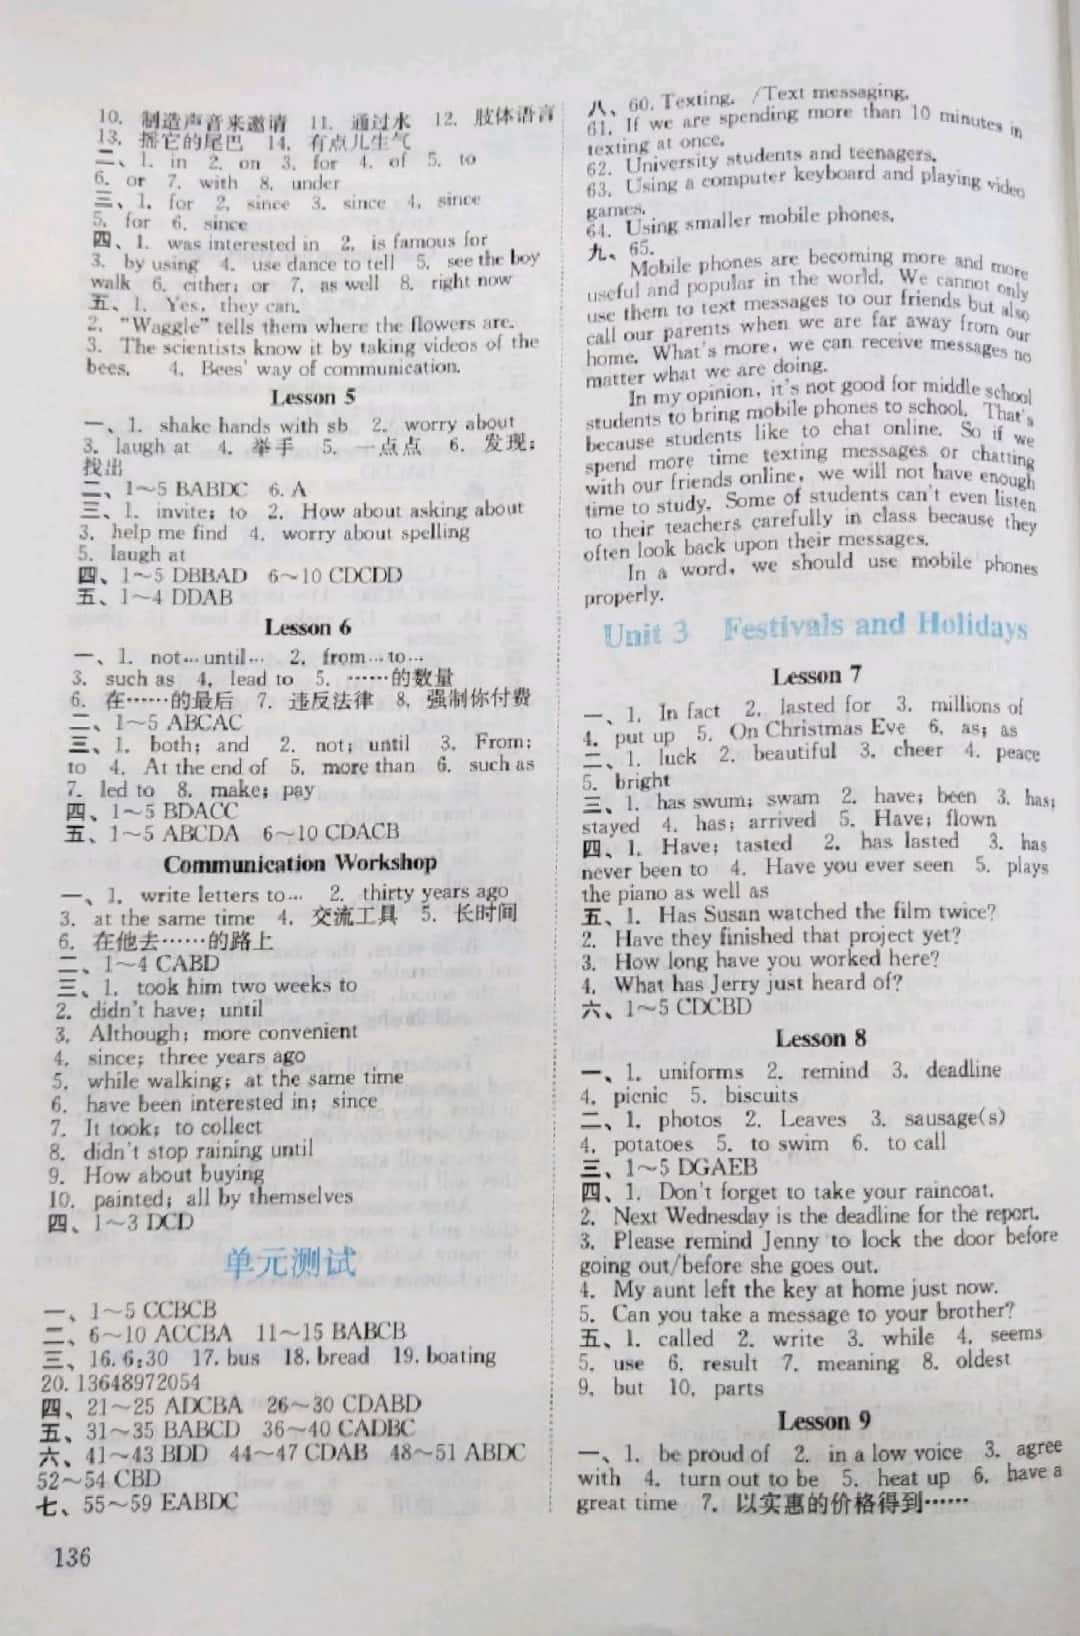 10. 制造声音来邀请 11. 通过水 12. 肢体语言
13. 摇它的尾巴 14. 有点儿生气
二、1. in 2. on 3. for 4. of 5. to
6. or 7. with 8. under
三、1. for 2. since 3. since 4. since
5. for 6. since
四、1. was interested in 2. is famous for
3. by using 4. use dance to tell 5. see the boy
walk 6. either; or 7. as well 8. right now
五、1. Yes, they can.
2. "Waggle" tells them where the flowers are.
3. The scientists know it by taking videos of the
bees. 4. Bees' way of communication.
Lesson 5
一、1. shake hands with sb 2. worry about
3. laugh at 4. 举手 5. 一点点 6. 发现;
找出
二、1~5 BABDC 6. A
三、1. invite; to 2. How about asking about
3. help me find 4. worry about spelling
5. laugh at
四、1~5 DBBAD 6~10 CDCDD
五、1~4 DDAB
Lesson 6
一、1. not… until… 2. from… to…
3. such as 4. lead to 5. ……的数量
6. 在……的最后 7. 违反法律 8. 强制你付费
二、1~5 ABCAC
三、1. both; and 2. not; until 3. From;
to 4. At the end of 5. more than 6. such as
7. led to 8. make; pay
四、1~5 BDACC
五、1~5 ABCDA 6~10 CDACB
Communication Workshop
一、1. write letters to… 2. thirty years ago
3. at the same time 4. 交流工具 5. 长时间
6. 在他去……的路上
二、1~4 CABD
三、1. took him two weeks to
2. didn't have; until
3. Although; more convenient
4. since; three years ago
5. while walking; at the same time
6. have been interested in; since
7. It took; to collect
8. didn't stop raining until
9. How about buying
10. painted; all by themselves
四、1~3 DCD
单元测试
一、1~5 CCBCB
二、6~10 ACCBA 11~15 BABCB
三、16. 6:30 17. bus 18. bread 19. boating
20. 13648972054
四、21~25 ADCBA 26~30 CDABD
五、31~35 BABCD 36~40 CADBC
六、41~43 BDD 44~47 CDAB 48~51 ABDC
52~54 CBD
七、55~59 EABDC
136
八、60. Texting. /Text messaging.
61. If we are spending more than 10 minutes in
texting at once.
62. University students and teenagers.
63. Using a computer keyboard and playing video
games.
64. Using smaller mobile phones.
九、65.
Mobile phones are becoming more and more
useful and popular in the world. We cannot only
use them to text messages to our friends but also
call our parents when we are far away from our
home. What's more, we can receive messages no
matter what we are doing.
In my opinion, it's not good for middle school
students to bring mobile phones to school. That's
because students like to chat online. So if we
spend more time texting messages or chatting
with our friends online, we will not have enough
time to study. Some of students can't even listen
to their teachers carefully in class because they
often look back upon their messages.
In a word, we should use mobile phones
properly.
Unit 3 Festivals and Holidays
Lesson 7
一、1. In fact 2. lasted for 3. millions of
4. put up 5. On Christmas Eve 6. as; as
二、1. luck 2. beautiful 3. cheer 4. peace
5. bright
三、1. has swum; swam 2. have; been 3. has;
stayed 4. has; arrived 5. Have; flown
四、1. Have; tasted 2. has lasted 3. has
never been to 4. Have you ever seen 5. plays
the piano as well as
五、1. Has Susan watched the film twice?
2. Have they finished that project yet?
3. How long have you worked here?
4. What has Jerry just heard of?
六、1~5 CDCBD
Lesson 8
一、1. uniforms 2. remind 3. deadline
4. picnic 5. biscuits
二、1. photos 2. Leaves 3. sausage(s)
4. potatoes 5. to swim 6. to call
三、1~5 DGAEB
四、1. Don't forget to take your raincoat.
2. Next Wednesday is the deadline for the report.
3. Please remind Jenny to lock the door before
going out/before she goes out.
4. My aunt left the key at home just now.
5. Can you take a message to your brother?
五、1. called 2. write 3. while 4. seems
5. use 6. result 7. meaning 8. oldest
9. but 10. parts
Lesson 9
一、1. be proud of 2. in a low voice 3. agree
with 4. turn out to be 5. heat up 6. have a
great time 7. 以实惠的价格得到……